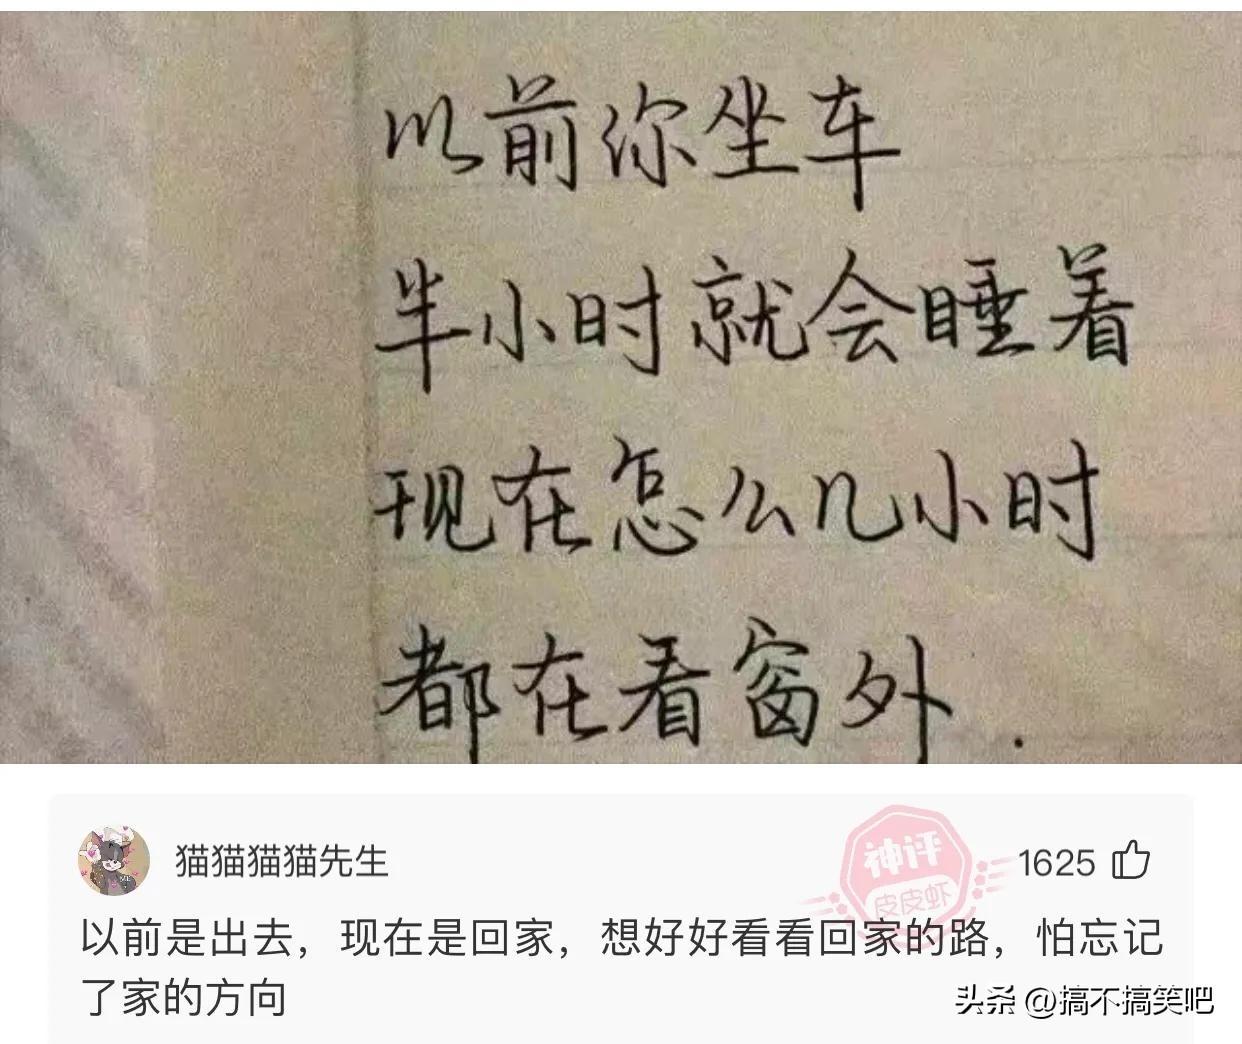 以前你坐车
半小时就会睡着
现在怎么几小时
都在看窗外.
猫猫猫猫先生
神评
皮皮虾
1625
以前是出去，现在是回家，想好好看看回家的路，怕忘记
了家的方向
头条 @搞不搞笑吧